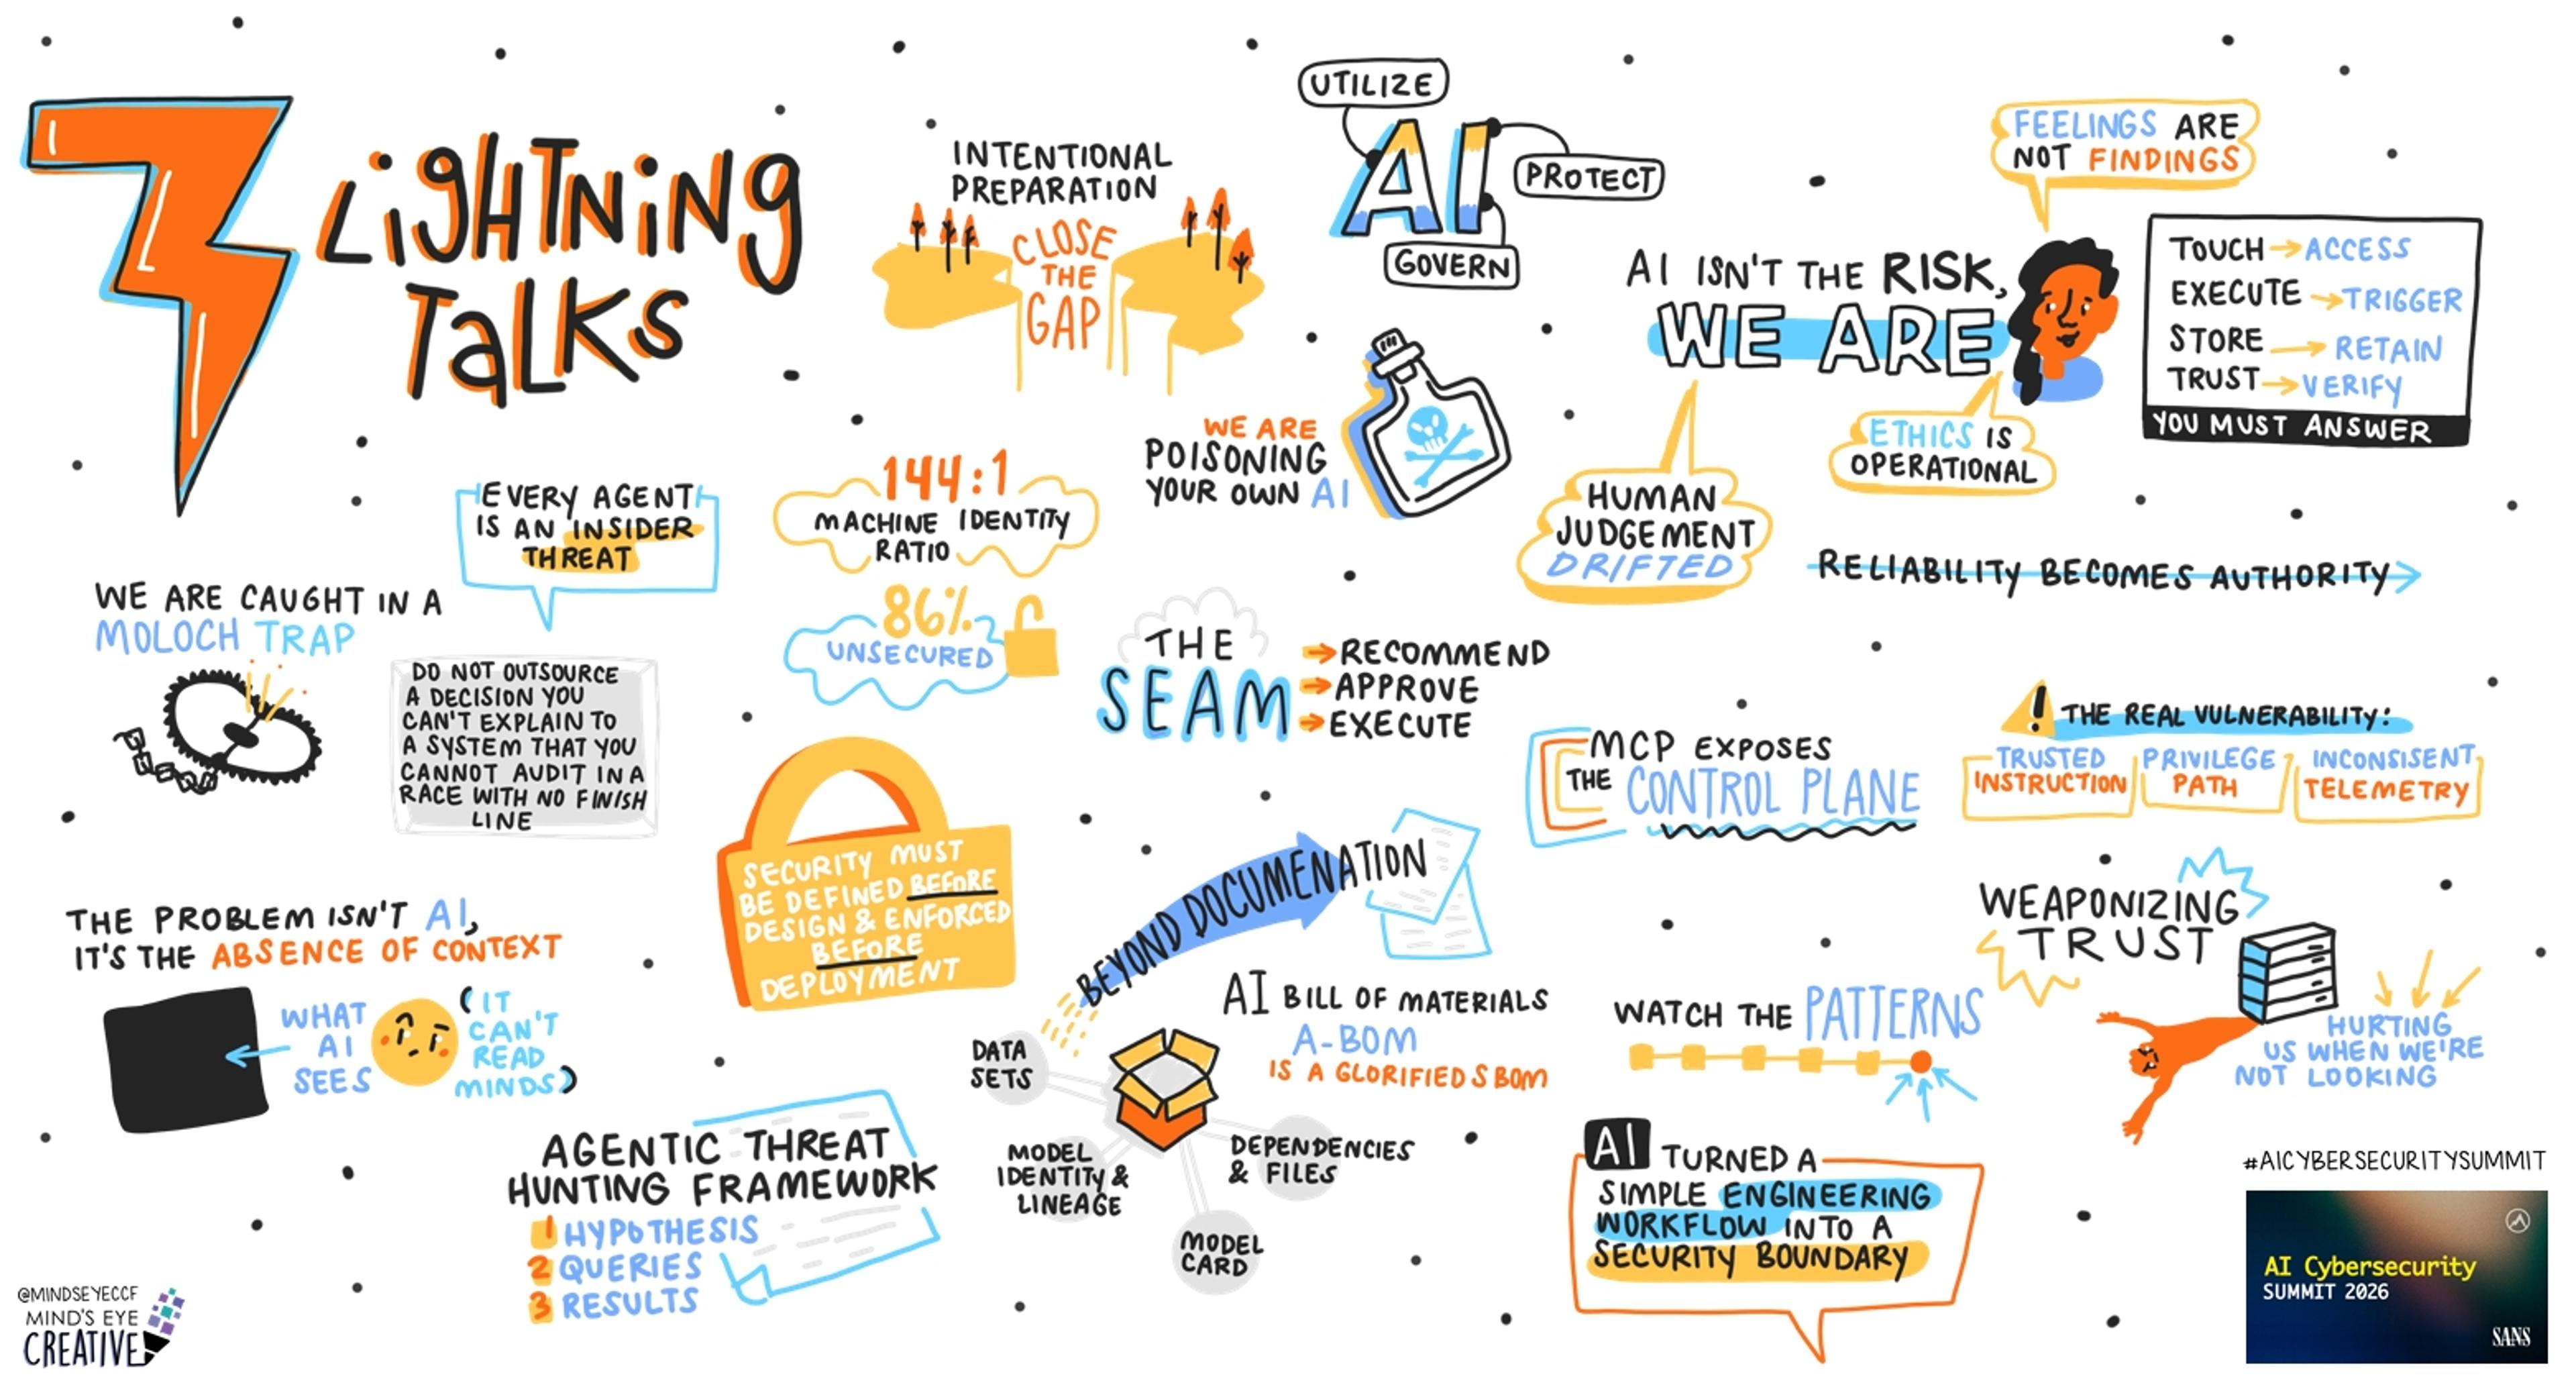 LIGHTNING
TALKS
INTENTIONAL
PREPARATION
CLOSE
THE
GAP
UTILIZE
AI
PROTECT
GOVERN
FEELINGS ARE
NOT FINDINGS
AI ISN'T THE RISK,
WE ARE
TOUCH → ACCESS
EXECUTE → TRIGGER
STORE → RETAIN
TRUST → VERIFY
YOU MUST ANSWER
ETHICS IS
OPERATIONAL
HUMAN
JUDGEMENT
DRIFTED
RELIABILITY BECOMES AUTHORITY
WE ARE
POISONING
YOUR OWN AI
144:1
MACHINE IDENTITY
RATIO
86%
UNSECURED
EVERY AGENT
IS AN INSIDER
THREAT
WE ARE CAUGHT IN A
MOLOCH TRAP
DO NOT OUTSOURCE
A DECISION YOU
CAN'T EXPLAIN TO
A SYSTEM THAT YOU
CANNOT AUDIT IN A
RACE WITH NO FINISH
LINE
THE
SEAM
→ RECOMMEND
→ APPROVE
→ EXECUTE
MCP EXPOSES
THE CONTROL PLANE
! THE REAL VULNERABILITY:
TRUSTED
INSTRUCTION
PRIVILEGE
PATH
INCONSISENT
TELEMETRY
SECURITY MUST
BE DEFINED BEFORE
DESIGN & ENFORCED
BEFORE
DEPLOYMENT
THE PROBLEM ISN'T AI,
IT'S THE ABSENCE OF CONTEXT
WHAT
AI
SEES
(IT
CAN'T
READ
MINDS)
BEYOND DOCUMENATION
AI BILL OF MATERIALS
A-BOM
IS A GLORIFIED SBOM
DATA
SETS
MODEL
IDENTITY &
LINEAGE
MODEL
CARD
DEPENDENCIES
& FILES
AGENTIC THREAT
HUNTING FRAMEWORK
1 HYPOTHESIS
2 QUERIES
3 RESULTS
WATCH THE PATTERNS
WEAPONIZING
TRUST
HURTING
US WHEN WE'RE
NOT LOOKING
AI TURNED A
SIMPLE ENGINEERING
WORKFLOW INTO A
SECURITY BOUNDARY
#AICYBERSECURITYSUMMIT
AI Cybersecurity
SUMMIT 2026
SANS
@MINDSEYECCF
MIND'S EYE
CREATIVE